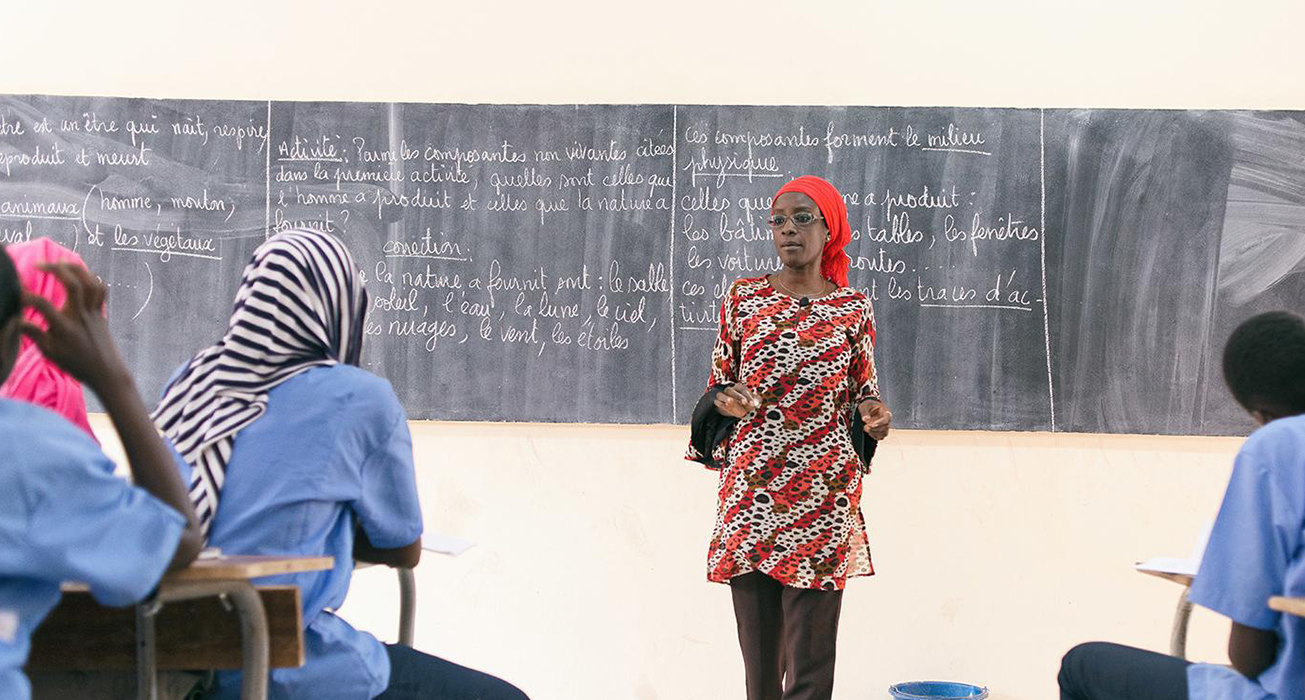 être est un être qui naît, respire,
reproduit et meurt
animaux (homme, mouton,
...) et les végétaux
....)
Activité : Parmi les composantes non vivantes citées
dans la première activité, quelles sont celles que
l'homme a produit et celles que la nature a
fournit ?
correction :
la nature a fournit sont : le sable
soleil, l'eau, la lune, le ciel,
les nuages, le vent, les étoiles
Ces composantes forment le milieu
physique.
celles que a produit :
les tables, les fenêtres
les voitures routes.....
ces les traces d'ac-
tivité